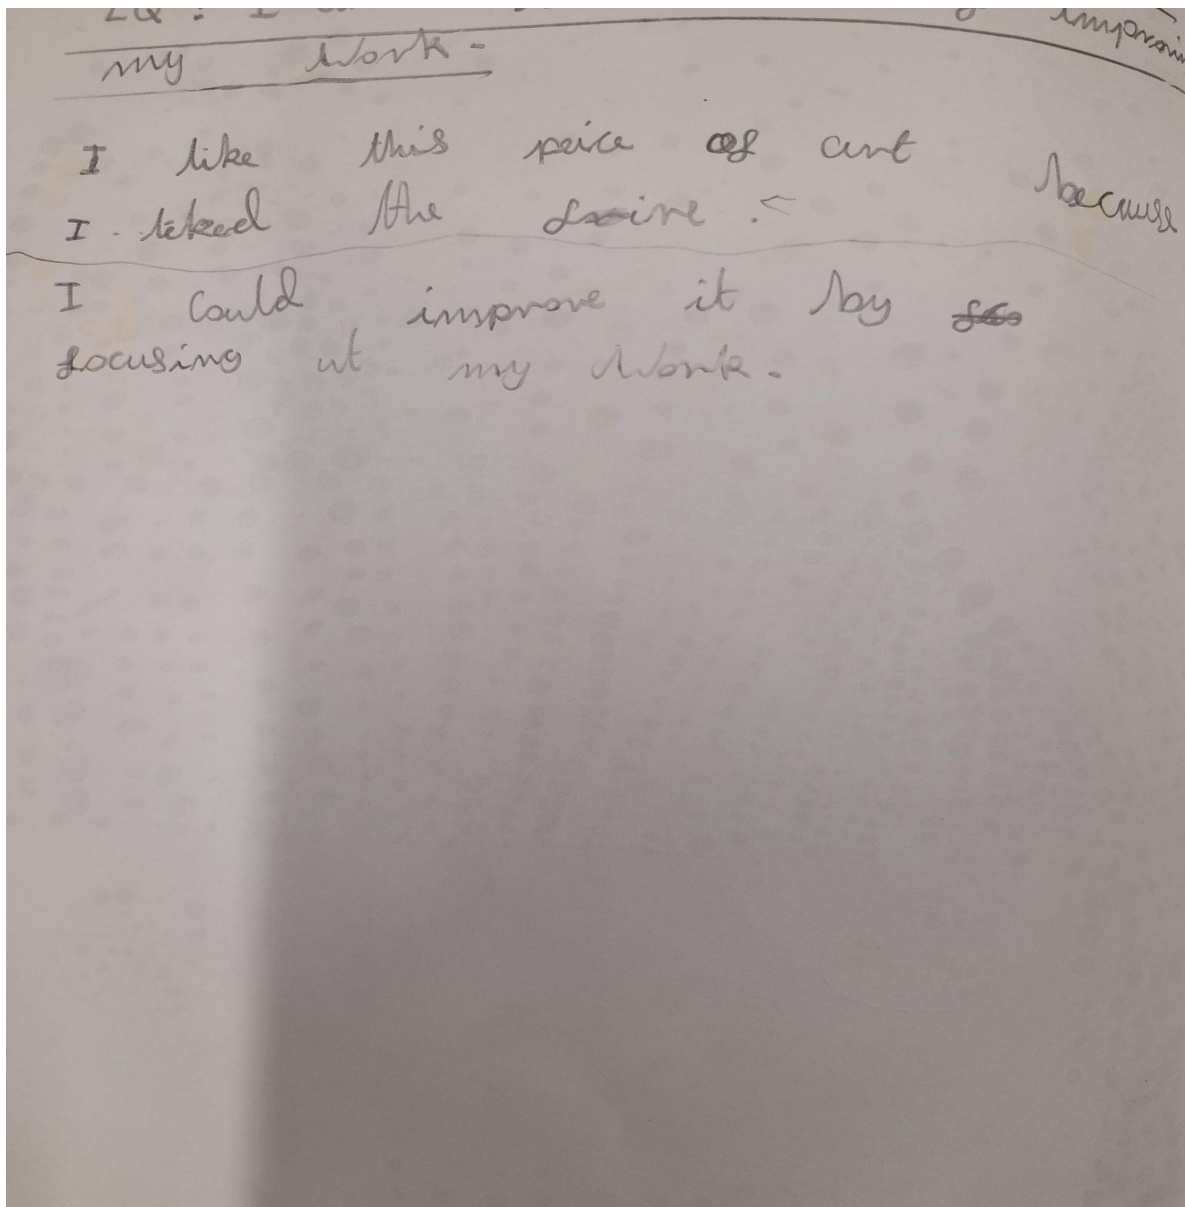 LQ: I improvin
my Work.
I like this peice of art because
I liked the
I could improve it by
focusing at my Work.